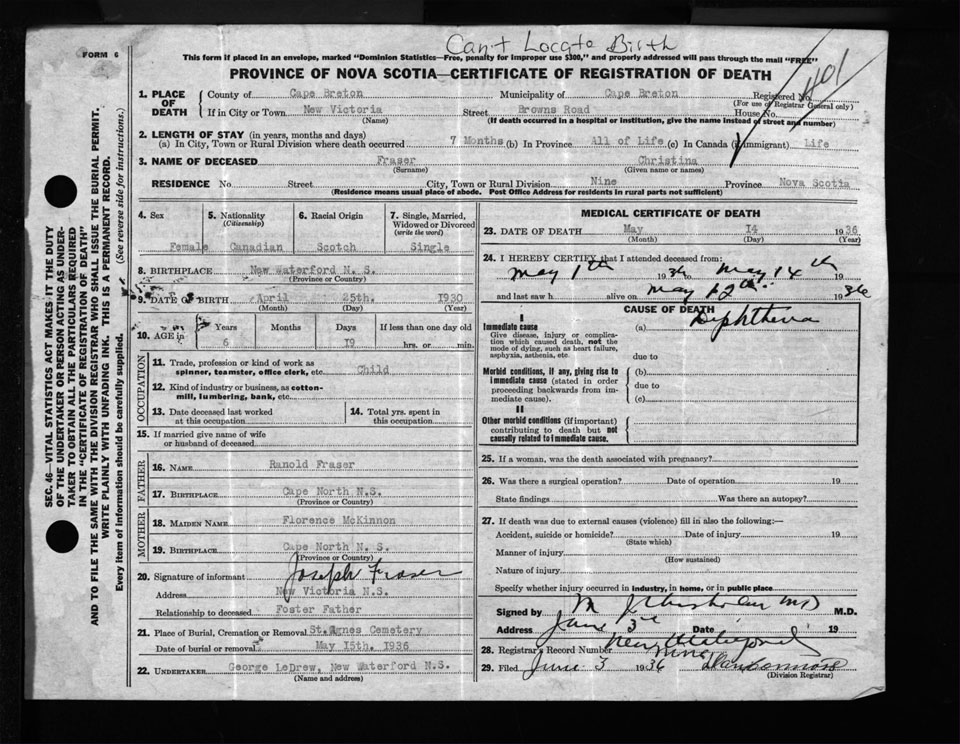 Can't Locate Birth
FORM 6
This form if placed in an envelope, marked "Dominion Statistics—Free, penalty for improper use $300," and properly addressed will pass through the mail "FREE"
PROVINCE OF NOVA SCOTIA—CERTIFICATE OF REGISTRATION OF DEATH
401
1. PLACE OF DEATH County of Cape Breton Municipality of Cape Breton Registered No.
(For use of Registrar General only)
If in City or Town New Victoria Street Browns Road House No.
(Name) (If death occurred in a hospital or institution, give the name instead of street and number)
2. LENGTH OF STAY (in years, months and days)
(a) In City, Town or Rural Division where death occurred 7 Months (b) In Province All of Life (c) In Canada (if immigrant) Life
3. NAME OF DECEASED Fraser Christina
(Surname) (Given name or names)
RESIDENCE No. Street City, Town or Rural Division Nine Province Nova Scotia
(Residence means usual place of abode. Post Office Address for residents in rural parts not sufficient)
4. Sex 5. Nationality (Citizenship) 6. Racial Origin 7. Single, Married, Widowed or Divorced (write the word)
Female Canadian Scotch Single
8. BIRTHPLACE New Waterford N. S.
(Province or Country)
9. DATE OF BIRTH April 25th. 1930
(Month) (Day) (Year)
10. AGE in Years Months Days If less than one day old
6 19 hrs. or min.
OCCUPATION
11. Trade, profession or kind of work as
spinner, teamster, office clerk, etc. Child
12. Kind of industry or business, as cotton-
mill, lumbering, bank, etc.
13. Date deceased last worked at this occupation 14. Total yrs. spent in this occupation
15. If married give name of wife
or husband of deceased
FATHER
16. NAME Ranold Fraser
17. BIRTHPLACE Cape North N.S.
(Province or Country)
MOTHER
18. MAIDEN NAME Florence McKinnon
19. BIRTHPLACE Cape North N. S.
(Province or Country)
20. Signature of informant Joseph Fraser
Address New Victoria N.S.
Relationship to deceased Foster Father
21. Place of Burial, Cremation or Removal St. Agnes Cemetery
Date of burial or removal May 15th. 1936
22. UNDERTAKER George LeDrew, New Waterford N.S.
(Name and address)
MEDICAL CERTIFICATE OF DEATH
23. DATE OF DEATH May 14 1936
(Month) (Day) (Year)
24. I HEREBY CERTIFY that I attended deceased from:
May 1th 1936 to May 14th 19
and last saw h alive on May 12th 1936
CAUSE OF DEATH
I
Immediate cause (a) Diphtheria
Give disease, injury or complica-
tion which caused death, not the
mode of dying, such as heart failure,
asphyxia, asthenia, etc. due to
Morbid conditions, if any, giving rise to (b)
immediate cause (stated in order due to
proceeding backwards from im-
mediate cause). (c)
II
Other morbid conditions (if important)
contributing to death but not
causally related to immediate cause.
25. If a woman, was the death associated with pregnancy?
26. Was there a surgical operation? Date of operation 19
State findings Was there an autopsy?
27. If death was due to external causes (violence) fill in also the following:—
Accident, suicide or homicide? Date of injury 19
(State which)
Manner of injury
(How sustained)
Nature of injury
Specify whether injury occurred in industry, in home, or in public place
Signed by M.D.
Address June 3rd Date 19
28. Registrar's Record Number Nine
29. Filed June 3 1936
(Division Registrar)
SEC. 46—VITAL STATISTICS ACT MAKES IT THE DUTY
OF THE UNDERTAKER OR PERSON ACTING AS UNDER-
TAKER TO OBTAIN ALL THE PARTICULARS REQUIRED
IN THE "CERTIFICATE OF REGISTRATION OF DEATH"
AND TO FILE THE SAME WITH THE DIVISION REGISTRAR WHO SHALL ISSUE THE BURIAL PERMIT.
WRITE PLAINLY WITH UNFADING INK. THIS IS A PERMANENT RECORD.
Every item of information should be carefully supplied. (See reverse side for instructions.)